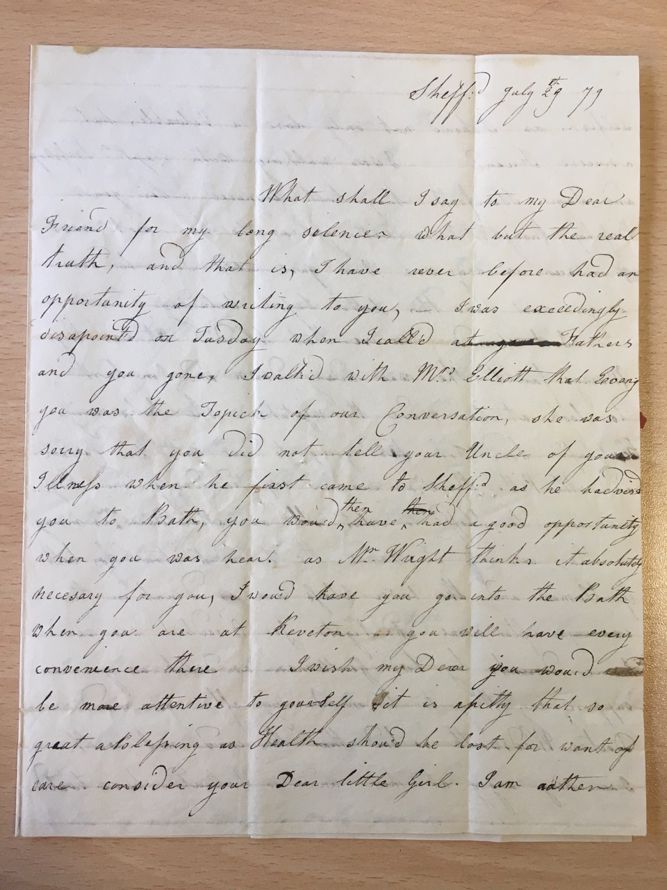 Sheff.d July 29th 79
What shall I say to my Dear
Friend for my long silence what but the real
truth, and that is, I have never before had an
opportunity of writing to you, I was exceedingly
disapoint'd on Tusday when I call'd at Fathers
and you gone, I walk'd with Mrs Elliott that Eveng
you was the Topick of our Conversation, she was
sorry that you did not tell your Uncle of your
Illness when he first came to Sheff.d as he hadvisd
you to Bath, you woud then have had a good opportunity
when you was hear. as Mr Wright thinks it absolutely
necesary for you, I woud have you go into the Bath
when you are at Keveton as you will have every
convenience there I wish my Dear you woud
be more attentive to yourself it is a pitty that so
great a blessing as Health shoud be lost for want of
care. consider your Dear little Girl. I am